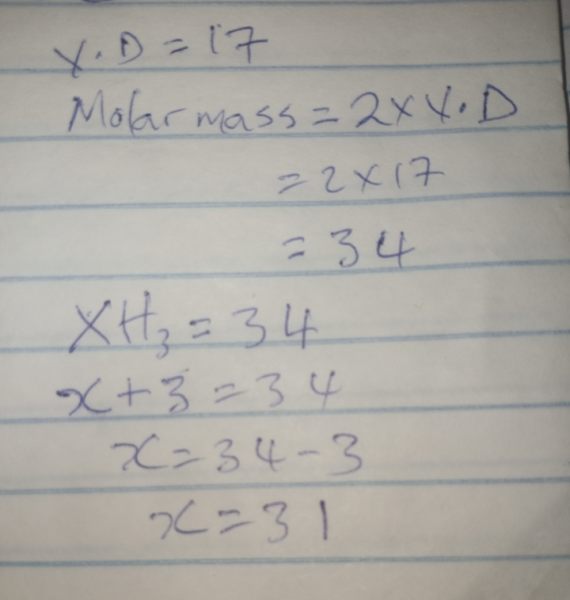 V.D = 17
Molar mass = 2 x V.D
= 2 x 17
= 34
XH₃ = 34
x + 3 = 34
x = 34 - 3
x = 31